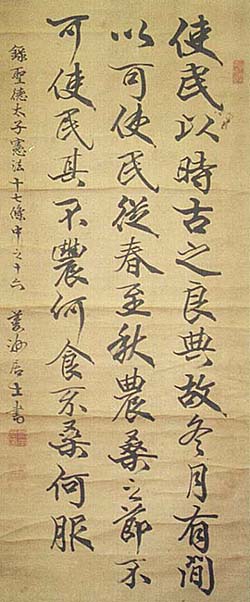 使民以時古之良典故冬月有間
以可使民從春至秋農桑之節不
可使民其不農何食不桑何服
錄聖德太子憲法十七條中之十六 居士書